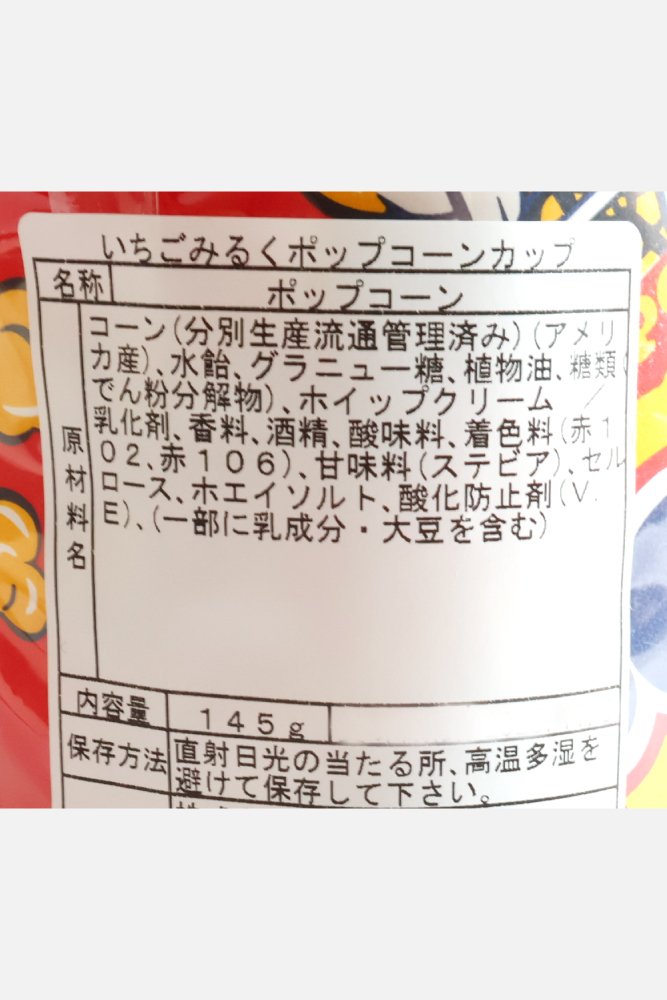 いちごみるくポップコーンカップ
名称
ポップコーン
原材料名
コーン(分別生産流通管理済み)(アメリ
カ産)、水飴、グラニュー糖、植物油、糖類(
でん粉分解物)、ホイップクリーム ／
乳化剤、香料、酒精、酸味料、着色料(赤1
02、赤106)、甘味料(ステビア)、セル
ロース、ホエイソルト、酸化防止剤(V.
E)、(一部に乳成分・大豆を含む)
内容量
145g
保存方法
直射日光の当たる所、高温多湿を
避けて保存して下さい。